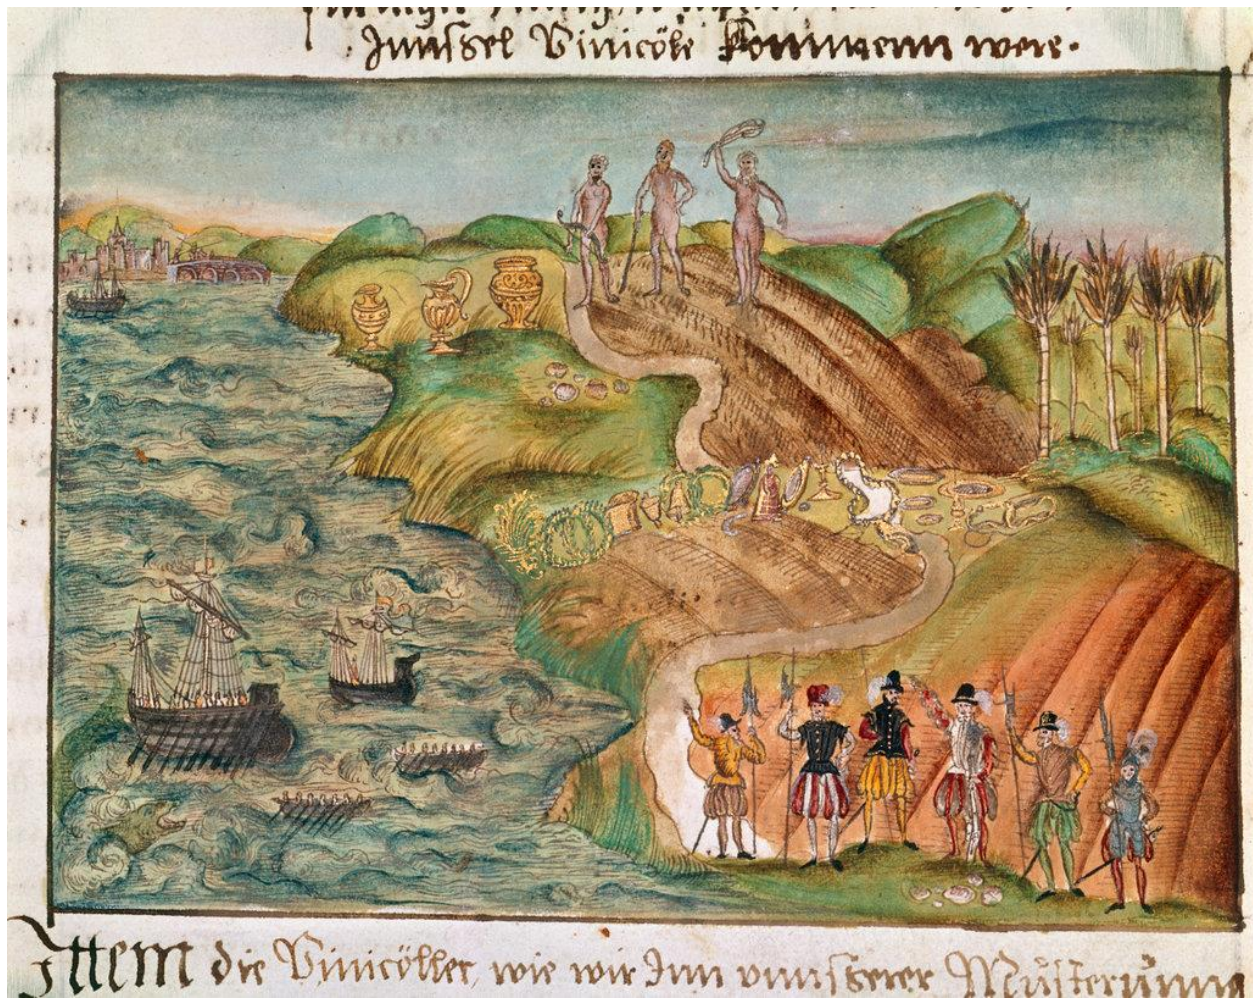 Innsßel Vinicöle kommenn were.
Ittem die Vinicöller, wie wir Inn vnnserer Musterunng